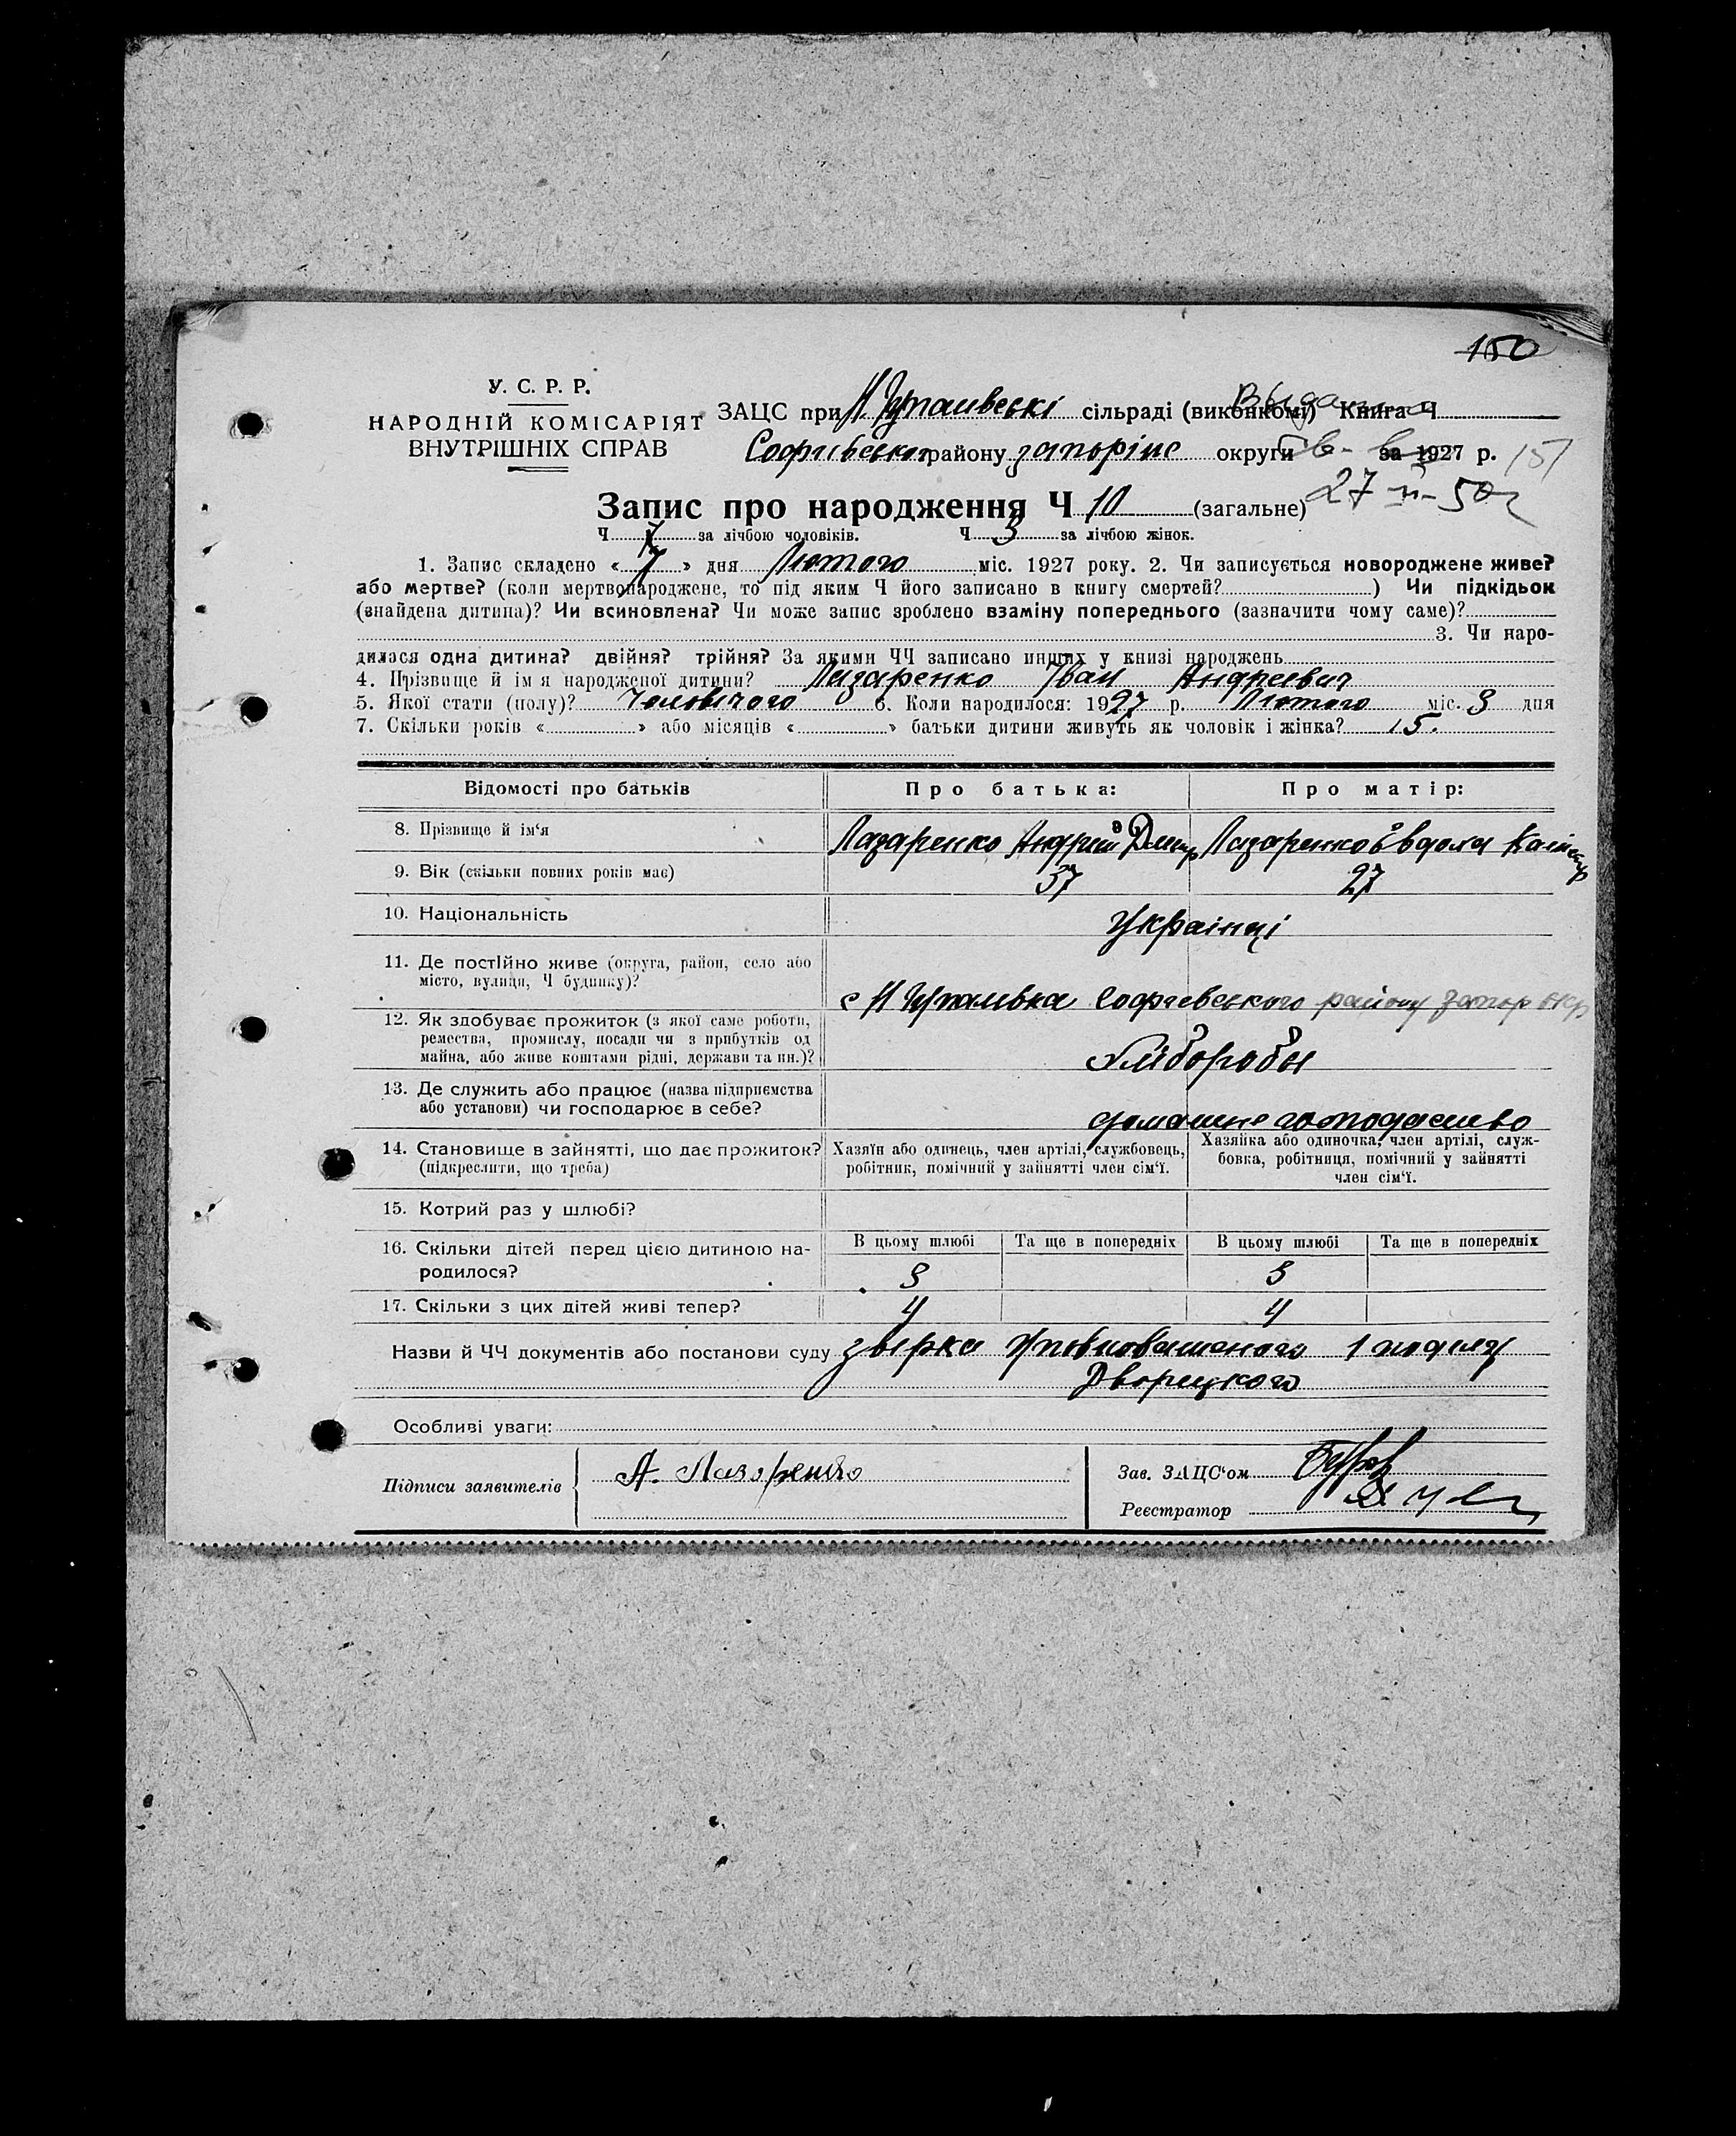 150
У. С. Р. Р.
НАРОДНІЙ КОМІСАРІЯТ
ВНУТРІШНІХ СПРАВ
ЗАЦС при сільраді (виконкомі) Книга Ч
Софиевського району запоріжс округи за 1927 р. 151
27-II-50г
Запис про народження Ч 10 (загальне)
Ч 7 за лічбою чоловіків. Ч 3 за лічбою жінок.
1. Запис складено « 7 » дня Лютого міс. 1927 року. 2. Чи записується новороджене живе?
або мертве? (коли мертвонароджене, то під яким Ч його записано в книгу смертей? ) Чи підкідьок
(знайдена дитина)? Чи всиновлена? Чи може запис зроблено взаміну попереднього (зазначити чому саме)?
3. Чи наро-
дилася одна дитина? двійня? трійня? За якими ЧЧ записано инших у книзі народжень
4. Прізвище й ім'я народженої дитини? Лазаренко Іван Андреевич
5. Якої стати (полу)? Чоловічого 6. Коли народилося: 1927 р. Лютого міс. 3 дня
7. Скільки років « » або місяців « » батьки дитини живуть як чоловік і жінка? 15.
Відомості про батьків Про батька: Про матір:
8. Прізвище й ім'я Лазаренко Андрій Дмитр Лазаренко Євдокя
9. Вік (скільки повних років має) 37 27
10. Національність Українці
11. Де постійно живе (округа, район, село або
місто, вулиця, Ч будинку)? с Софиевського району Запор окр
12. Як здобуває прожиток (з якої саме роботи,
ремества, промислу, посади чи з прибутків од
майна, або живе коштами рідні, держави та ин.)? Хлібороби
13. Де служить або працює (назва підприємства
або установи) чи господарює в себе? домашне господарство
14. Становище в зайнятті, що дає прожиток?
(підкреслити, що треба)
Хазяїн або одинець, член артілі, службовець,
робітник, помічний у зайнятті член сім'ї.
Хазяйка або одиночка, член артілі, служ-
бовка, робітниця, помічний у зайнятті
член сім'ї.
15. Котрий раз у шлюбі?
16. Скільки дітей перед цією дитиною на-
родилося?
В цьому шлюбі Та ще в попередніх В цьому шлюбі Та ще в попередніх
17. Скільки з цих дітей живі тепер? 4 4
Назви й ЧЧ документів або постанови суду звірка уповноваженого
Дворецкого
Особливі уваги:
Підписи заявителів А. Лазаренко
Зав. ЗАЦС'ом
Реєстратор